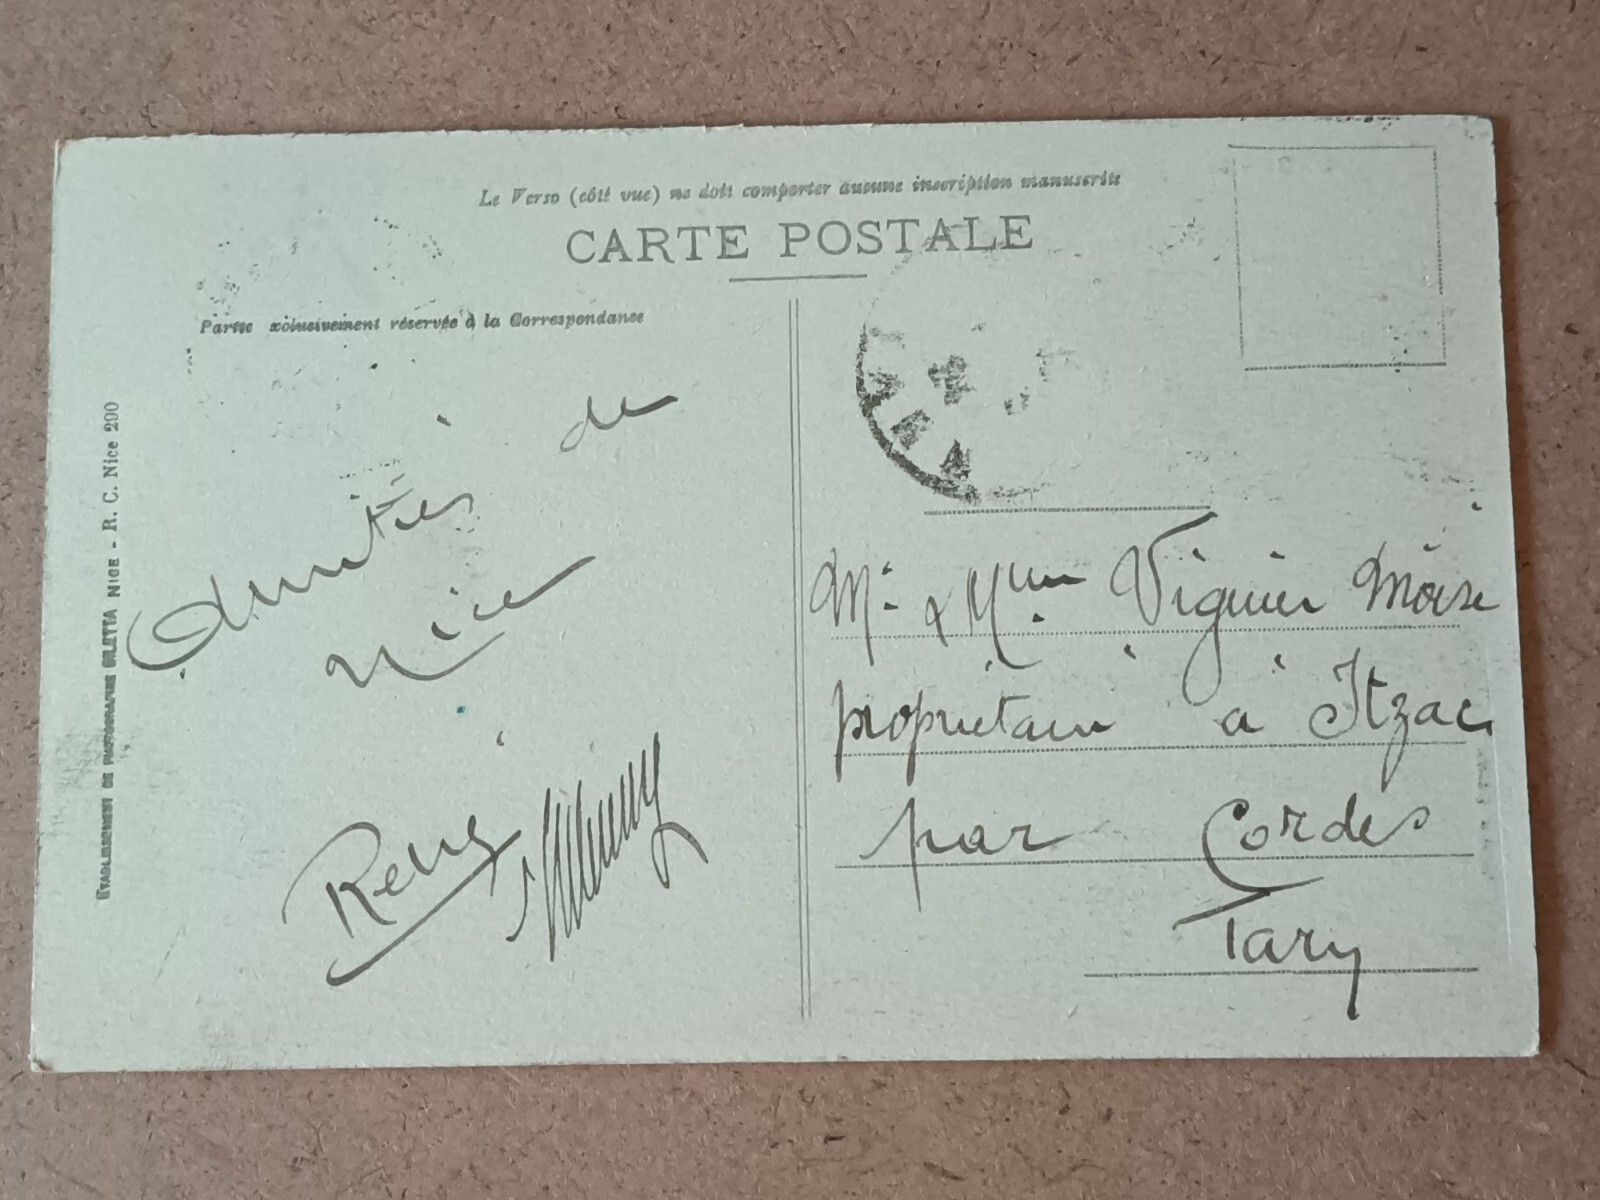 Le Verso (côté vue) ne doit comporter aucune inscription manuscrite
CARTE POSTALE
Partie exclusivement réservée à la Correspondance
ETABLISSEMENT DE PHOTOGRAPHIE GILETTA NICE - R. C. Nice 290
Amitiés de
Nice
René
Mr & Mme Viguier Moïse
propriétaire à Itzac
par Cordes
Tarn